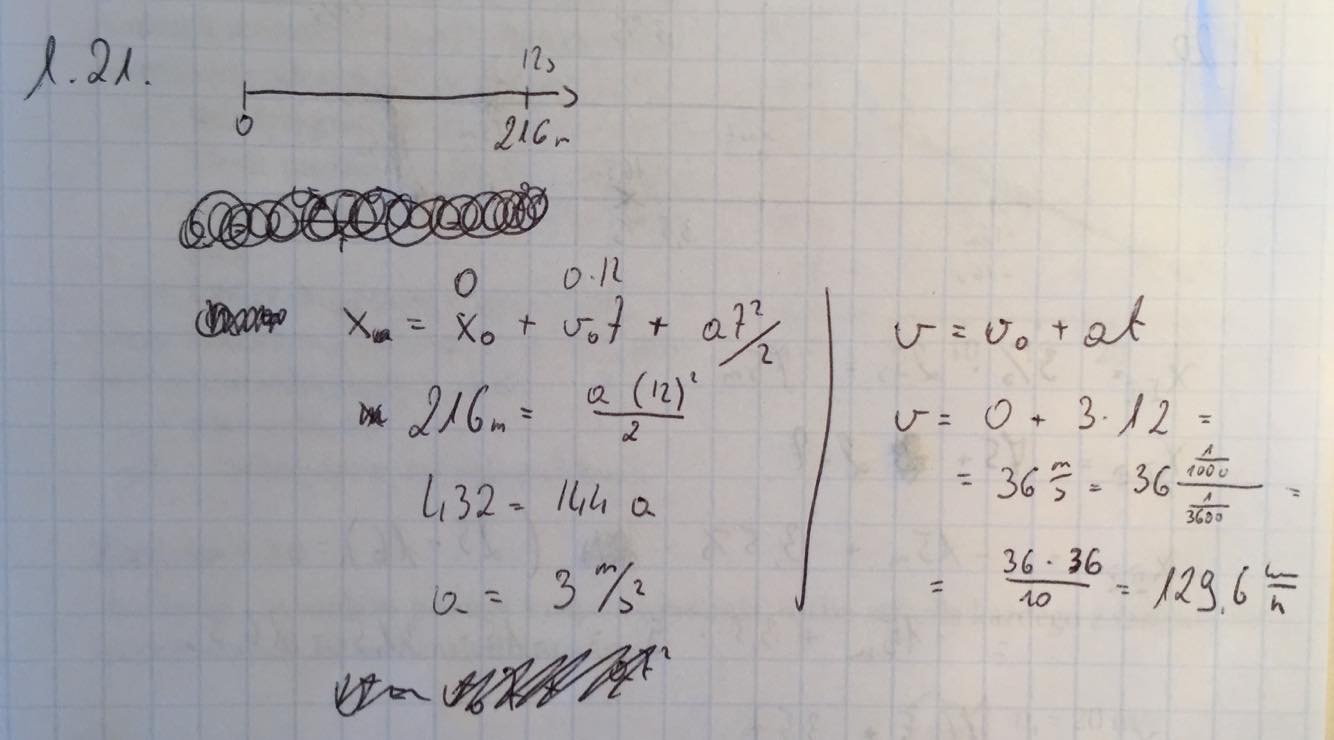 1.21.
12s
0 216m
0 0·12
x = x₀ + v₀t + at²/2
216m = a (12)²/2
432 = 144 a
a = 3 m/s²
v = v₀ + at
v = 0 + 3·12 =
= 36 m/s = 36 (1/1000)/(1/3600) =
= 36·36/10 = 129,6